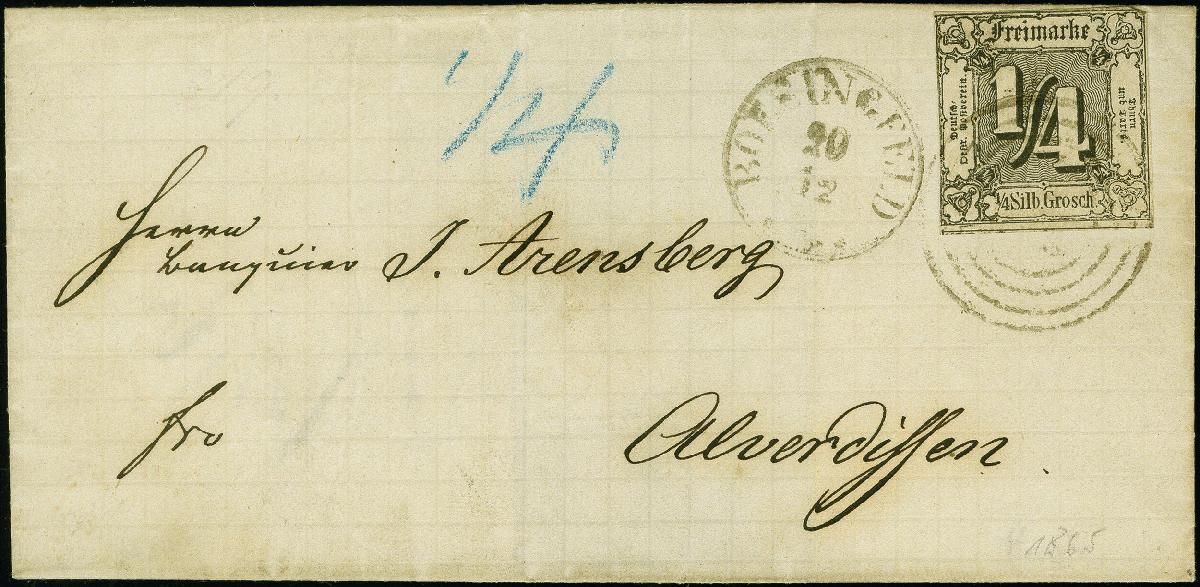 1/4
BOESINGFELD
20
12
Freimarke
Deutsch-
Oestr. Postverein.
1/4
Thurn
und Taxis
1/4 Silb. Grosch.
Herrn
Banquier J. Arensberg
fro
Alverdissen
1865